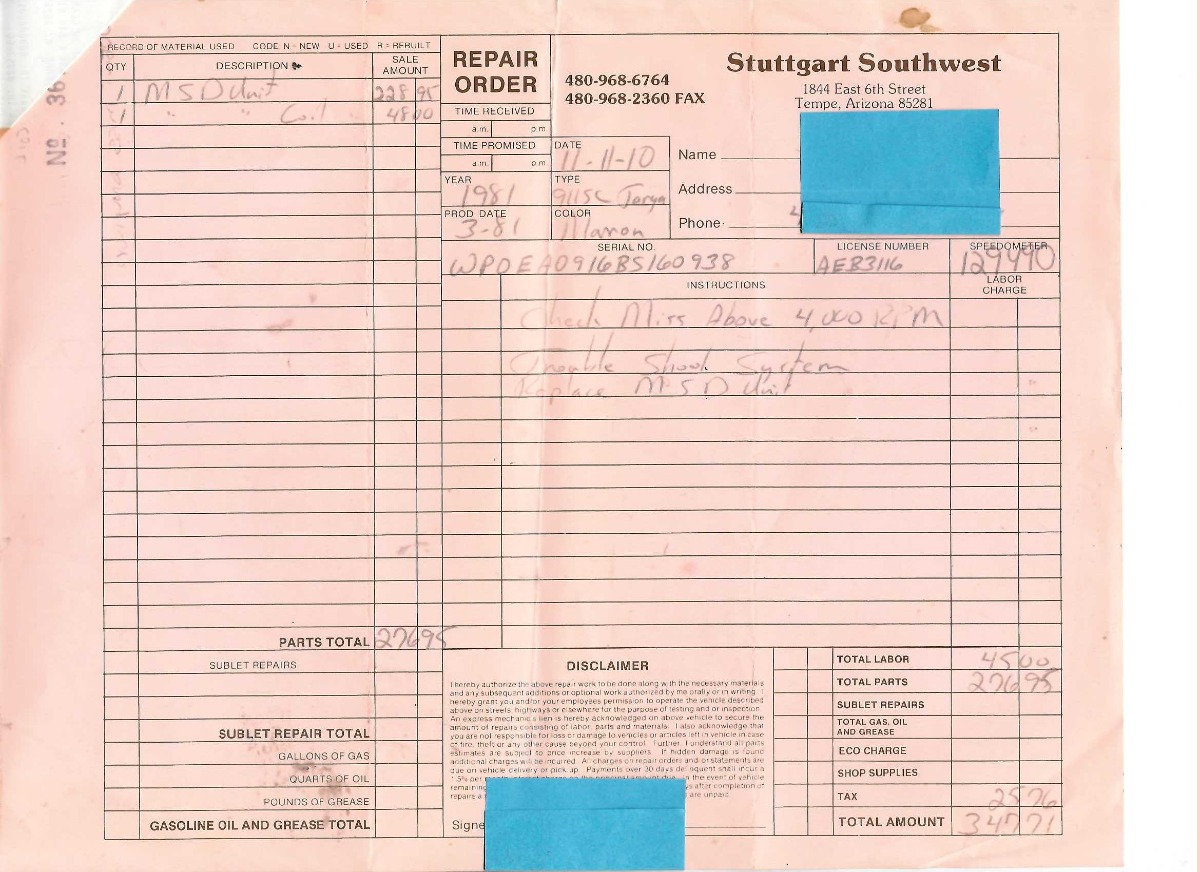 RECORD OF MATERIAL USED CODE N = NEW U = USED R = REBUILT
QTY DESCRIPTION SALE AMOUNT
1 MSD Unit 228 95
1 " " Coil 48 00
No. 36
REPAIR ORDER
480-968-6764
480-968-2360 FAX
Stuttgart Southwest
1844 East 6th Street
Tempe, Arizona 85281
TIME RECEIVED
a.m. p.m
TIME PROMISED
a.m. p.m
DATE
11-11-10
YEAR
1981
TYPE
911SC Targa
PROD DATE
3-81
COLOR
Maron
Name
Address
Phone
SERIAL NO.
WPOEA0916BS160938
LICENSE NUMBER
AEB3116
SPEEDOMETER
129490
INSTRUCTIONS
LABOR CHARGE
Check Miss Above 4,000 RPM
Trouble Shoot System
Replace MSD Unit
PARTS TOTAL 276 95
SUBLET REPAIRS
SUBLET REPAIR TOTAL
GALLONS OF GAS
QUARTS OF OIL
POUNDS OF GREASE
GASOLINE OIL AND GREASE TOTAL
DISCLAIMER
I hereby authorize the above repair work to be done along with the necessary materials
and any subsequent additions or optional work authorized by me orally or in writing. I
hereby grant you and/or your employees permission to operate the vehicle described
above on streets, highways or elsewhere for the purpose of testing and/or inspection.
An express mechanic's lien is hereby acknowledged on above vehicle to secure the
amount of repairs consisting of labor, parts and materials. I also acknowledge that
you are not responsible for loss or damage to vehicles or articles left in vehicle in case
of fire, theft or any other cause beyond your control. Further, I understand all parts
estimates are subject to price increase by suppliers. If hidden damage is found
additional charges will be incurred. All charges on repair orders and/or statements are
due on vehicle delivery or pick up. Payments over 30 days delinquent shall incur a
1.5% per in the event of vehicle
remaining after completion of
repairs a are unpaid.
Signe
TOTAL LABOR 45 00
TOTAL PARTS 276 95
SUBLET REPAIRS
TOTAL GAS, OIL AND GREASE
ECO CHARGE
SHOP SUPPLIES
TAX 25 76
TOTAL AMOUNT 347 71